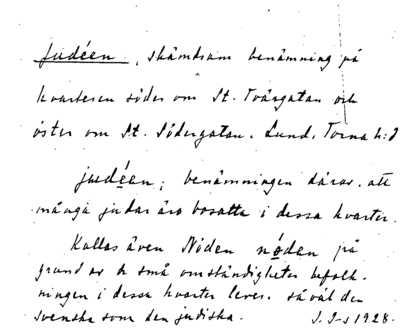 Judéen, skämtsam benämning på
kvarteren söder om St. Tvärgatan och
öster om St. Södergatan. Lund, Torna h:d
judéen; benämningen därav, att
många judar äro bosatta i dessa kvarter.
Kallas även Nöden nö̱den på
grund av de små omständigheter befolk-
ningen i dessa kvarter lever. såväl den
svenska som den judiska. J. I-s 1928.